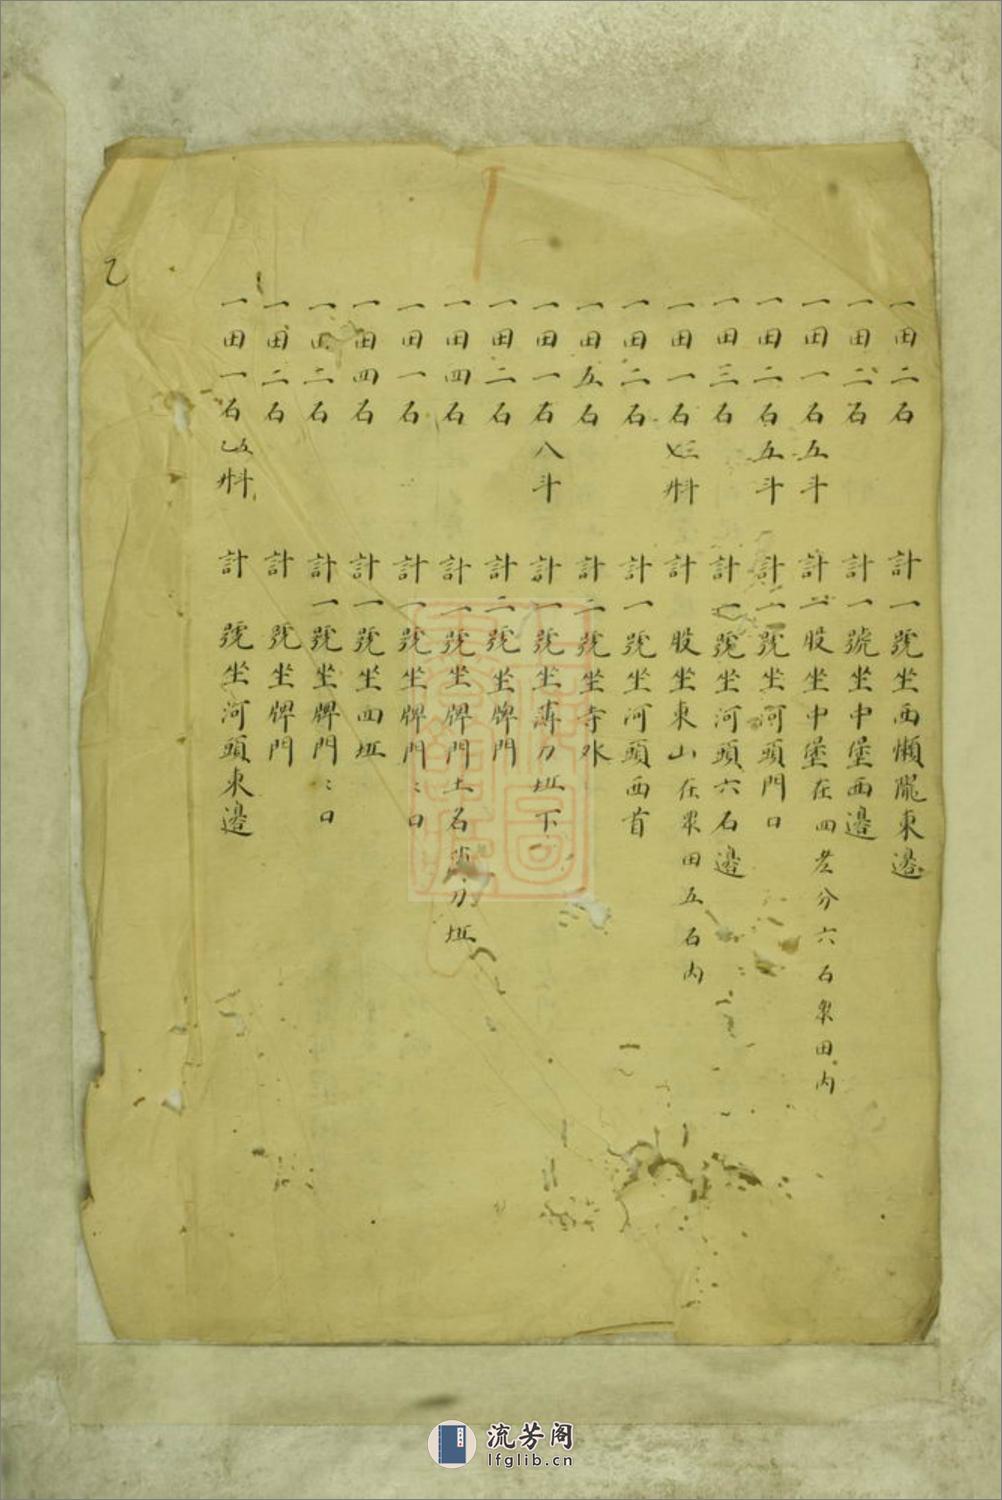 一田二石 計一號坐西懶隴東邊
一田二石 計一號坐中堡西邊
一田一石五斗 計二股坐中堡在四岔分六石眾田內
一田二石五斗 計一號坐河頭門口
一田三石 計一號坐河頭六石邊
一田一石 三斗 計 股坐東山在眾田五石內
一田二石 計一號坐河頭西首
一田五石 計二號坐寺水
一田一石八斗 計一號坐薄刀坵下
一田二石 計二號坐牌門
一田四石 計一號坐牌門土石薄刀坵
一田一石 計一號坐牌門〻口
一田四石 計一號坐四坵
一田二石 計一號坐牌門〻口
一田二石 計 號坐牌門
一田一石 五斗 計 號坐河頭東邊
流芳阁
lfglib.cn